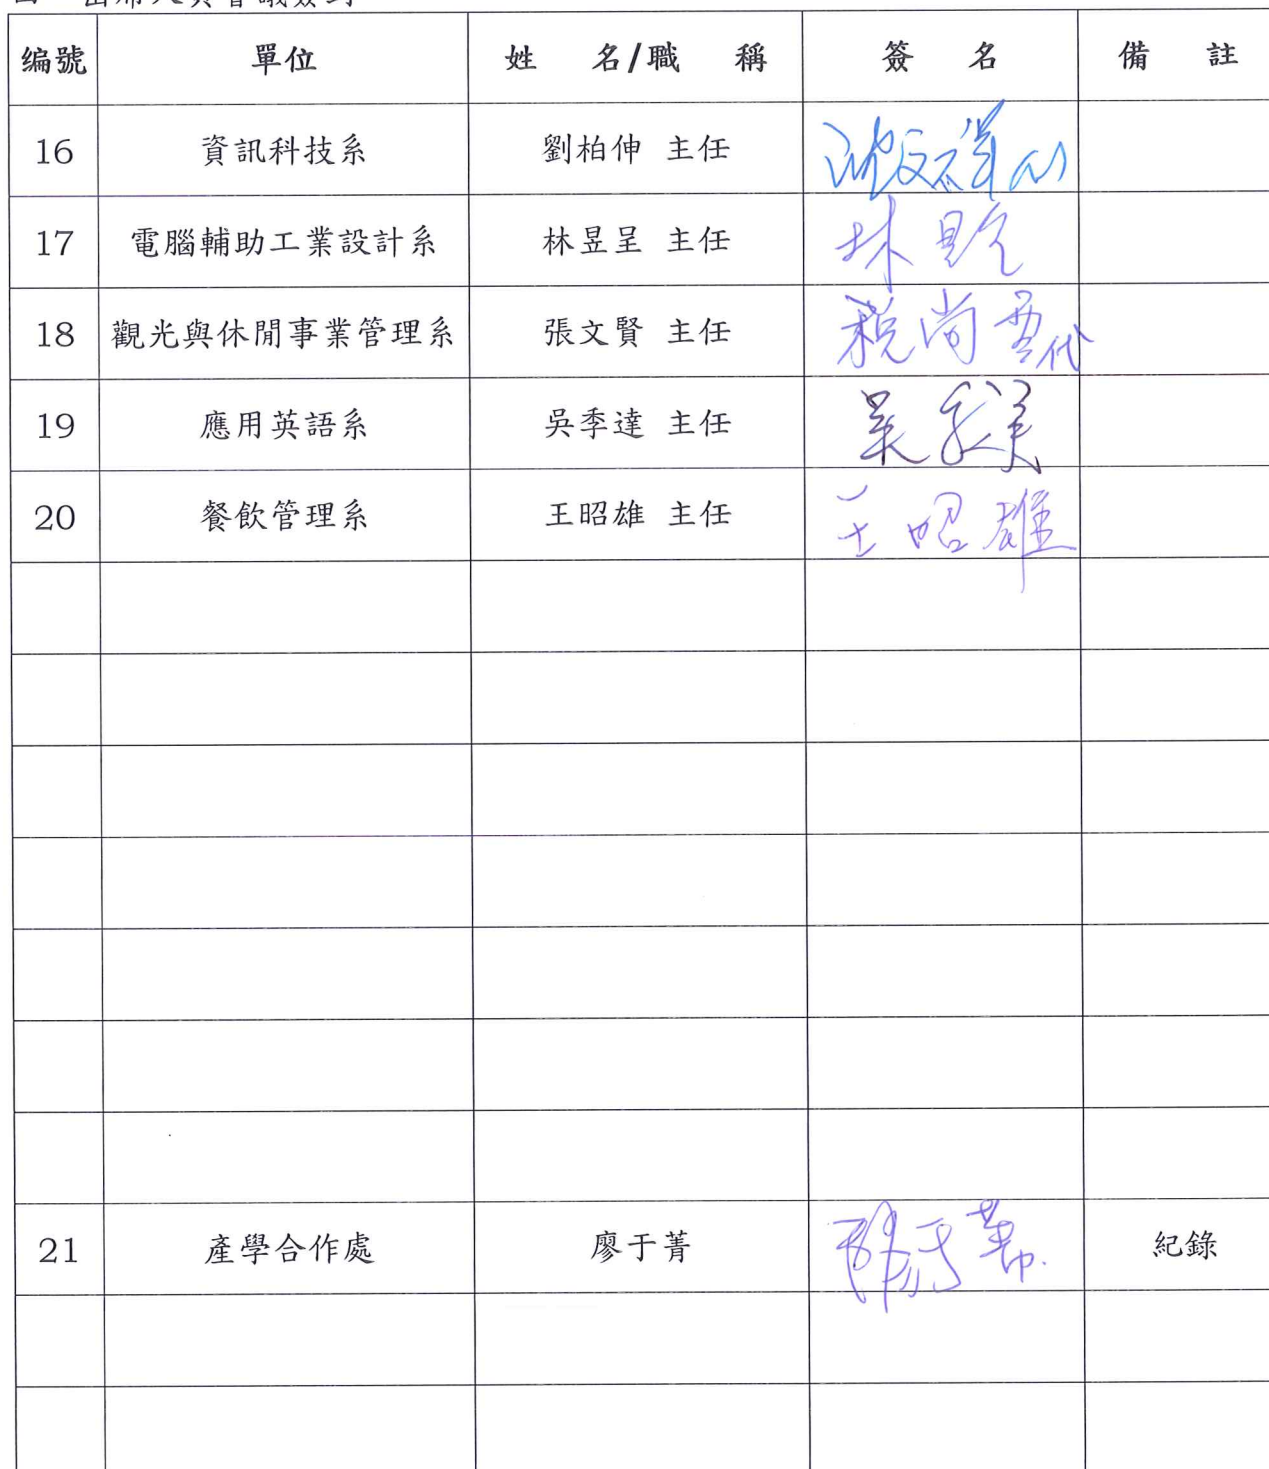 编號 單位 姓 名/職 稱 簽 名 備 註
16 資訊科技系 劉柏伸 主任
17 電腦輔助工業設計系 林昱呈 主任 林
18 觀光與休閒事業管理系 張文賢 主任 稅尚 代
19 應用英語系 吳季達 主任 吳
20 餐飲管理系 王昭雄 主任 王昭雄
21 產學合作處 廖于菁 廖于菁 紀錄